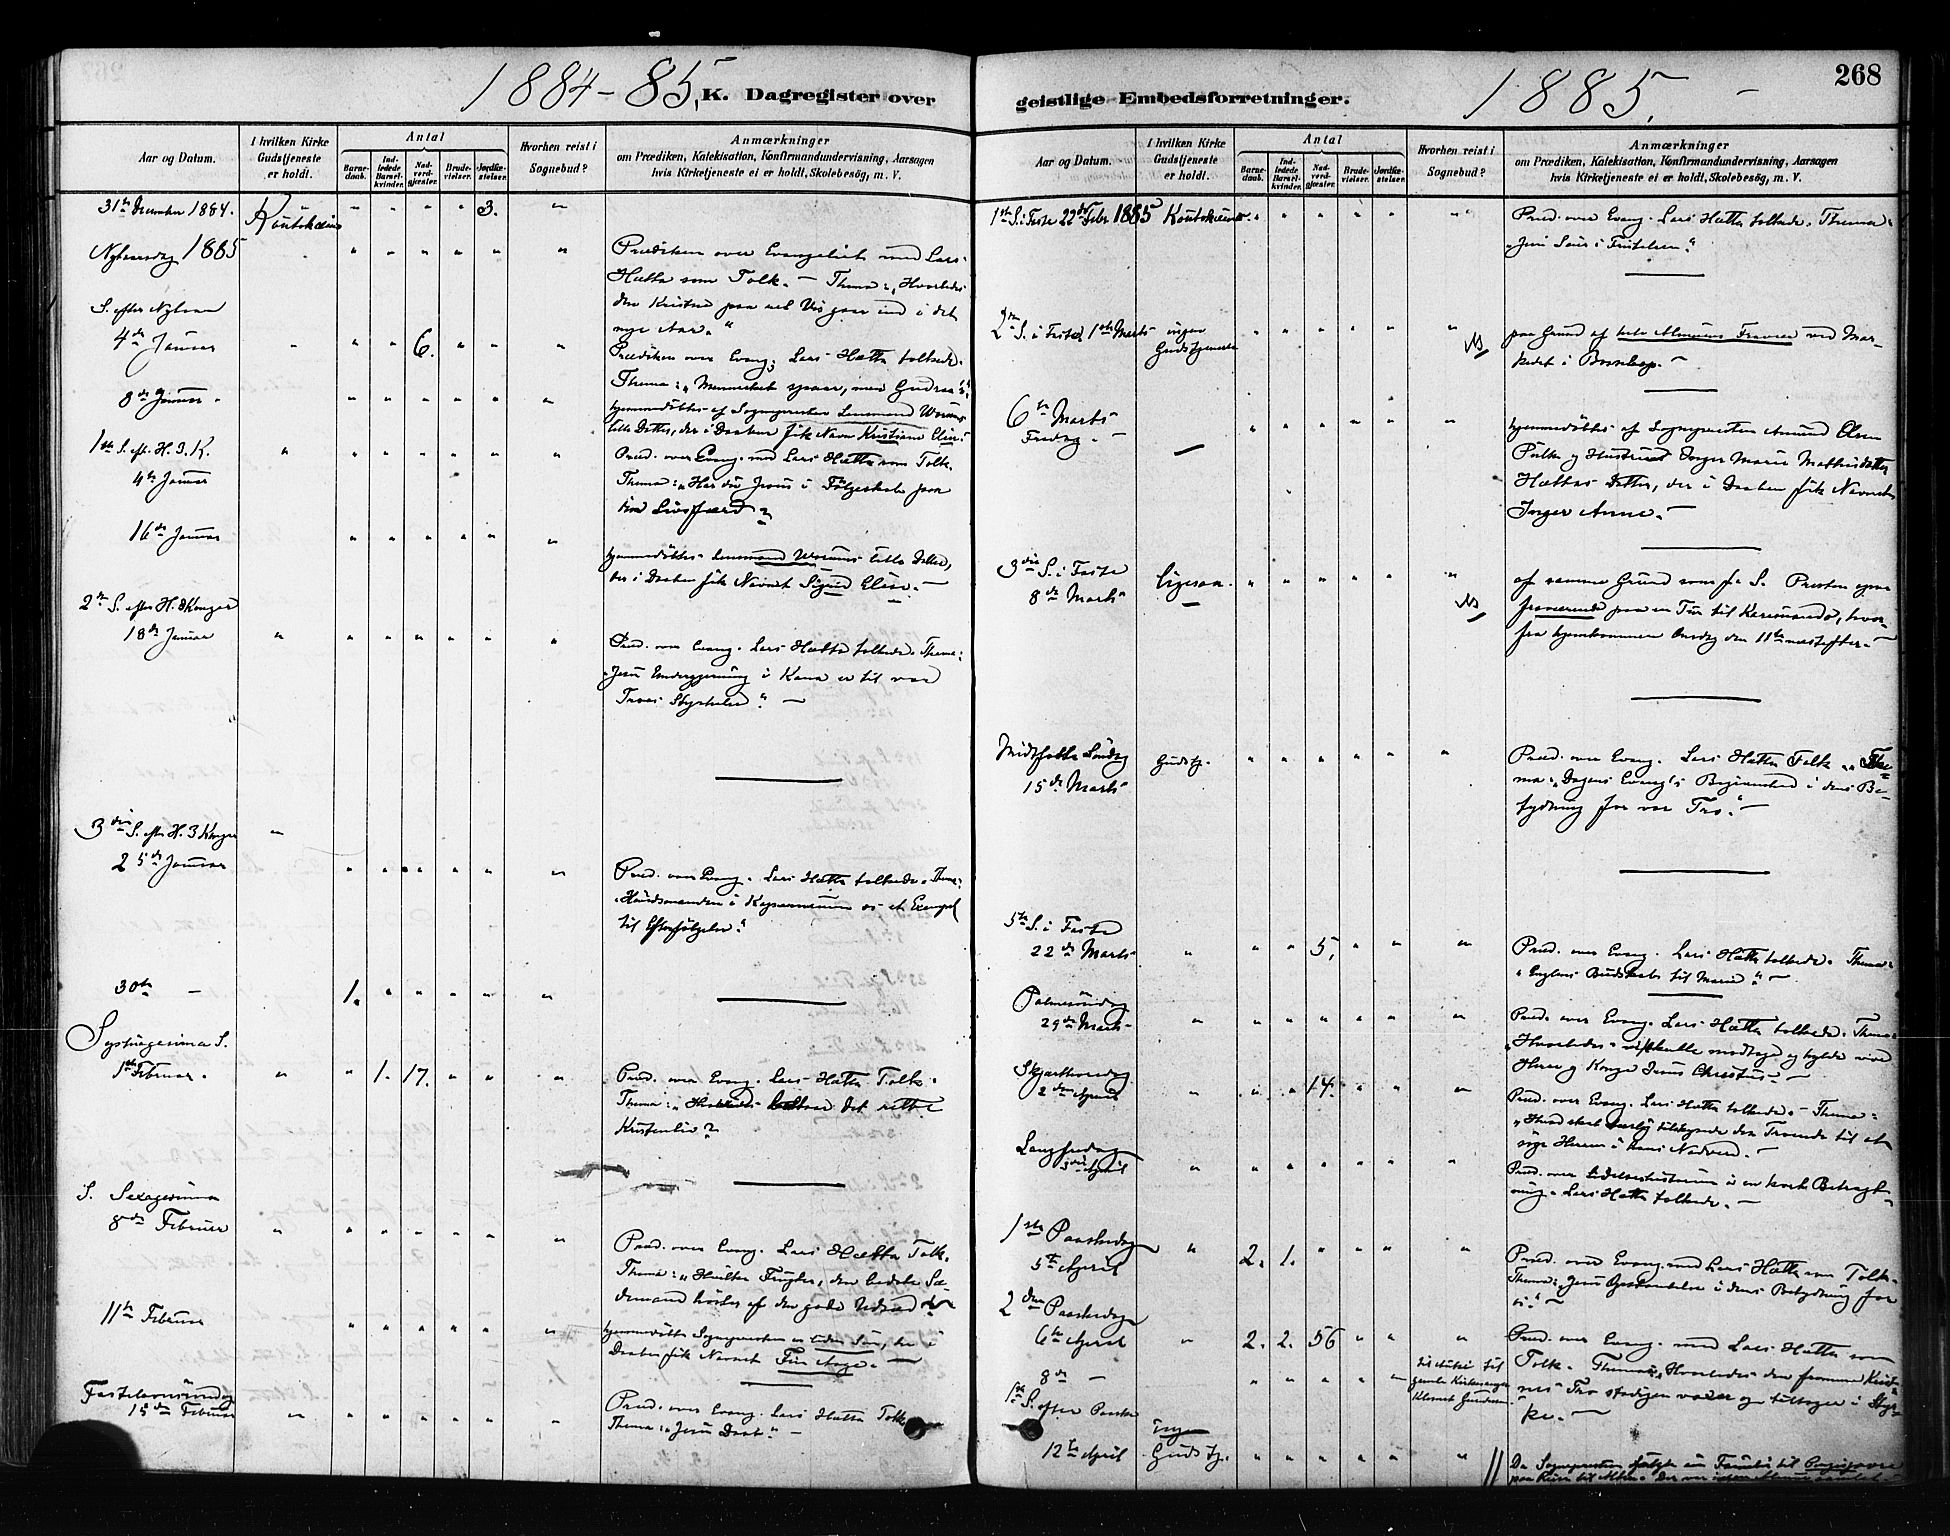 1884-85.
K. Dagregister over
Aar og Datum.
I hvilken Kirke
Gudstjeneste
er holdt.
Antal
Barne-
daab.
Ind-
ledede
Barsel-
kvinder.
Nad-
verd-
gjæster.
Brude-
vielser.
Jordfæ-
stelser.
Hvorhen reist i
Sognebud?
Anmærkninger
om Prædiken, Katekisation, Konfirmandundervisning, Aarsagen
hvis Kirketjeneste ei er holdt, Skolebesøg, m. V.
31te December 1884. Koutokeino " " " " 3. "
Nytaarsdag 1885
Prædiken over Evangeliet med Lars
Hætta som Tolk. — Thema: „Hvorledes
den Kristne paa ret Vis gaar ind i det
nye Aar."
S. efter Nytaar
4de Januar 6.
Prædiken over Evang. Lars Hætta tolkede.
Thema: „Mennesket spaar, men Gud raar."
8de Januar
hjemmedöbtes af Sognepresten Lensmand
lille Datter, der i Daaben fik Navn Kristiane
1ste S. eft. H. 3 K.
4de Januar
Præd. over Evang. med Lars Hætta som Tolk.
Thema: „Har du Jesus i Følgeskab paa
din Livsfærd?
16de Januar
hjemmedöbtes Lensmand lille Datter,
der i Daaben fik Navnet Sigrid
2den S. efter H. 3 Konger
18de Januar
Præd. over Evang. Lars Hætta tolkede. Thema:
„Jesu Undergjerning i Kana er til vor
Troes Styrkelse". —
3die S. eft. H. 3 Konger
25de Januar
Præd. over Evang. Lars Hætta tolkede. Thema:
„Høvedsmanden i Kapernaum os et Exempel
til Efterfölgelse."
30te — 1.
S.
1ste Februar. 1. 17.
Præd. over Evang. Lars Hætta Tolk.
Thema: det rette
Kristenliv?
S. Sexagesima
8de Februar
Præd. over Evang. Lars Hætta Tolk.
Thema: „Hvilken Frugt, den bedste Sæ-
demand höster af den gode Udsæd
11te Februar
hjemmedöbte Sognepresten en liden Sön, der i
Daaben fik Navnet Finn Aage. —
Fastelavnssöndag
15de Februar
Præd. over Evang. Lars Hætta Tolk
Thema: „Jesu Daab". —
geistlige Embedsforretninger.
1885.
268
Aar og Datum.
I hvilken Kirke
Gudstjeneste
er holdt.
Antal
Barne-
daab.
Ind-
ledede
Barsel-
kvinder.
Nad-
verd-
gjæster.
Brude-
vielser.
Jordfæ-
stelser.
Hvorhen reist i
Sognebud?
Anmærkninger
om Prædiken, Katekisation, Konfirmandundervisning, Aarsagen
hvis Kirketjeneste ei er holdt, Skolebesøg, m. V.
1ste S. i Faste 22de Febr 1885 Koutokeino
Præd. over Evang. Lars Hætta tolkede. Thema:
„Jesu Seier i Fristelsen."
2den S. i Faste 1ste Marts ingen
Gudstjeneste
paa Grund af hele Almuens Fravær ved Mar-
kedet i Bossekop. —
6te Marts
Fredag. —
hjemmedöbtes af Sognepresten Amund Olsen
og Hustru Inger Marie Mathisdatter
Hættas Datter, der i Daaben fik Navnet
Inger Anne. —
3die S. i Faste
8de Marts Ligesaa.
af samme Grund som f. S. Presten ogsaa
fraværende paa en Tur til hvor-
fra hjemkommen Onsdag den 11te næstefter. —
Midtfaste Söndag
15de Marts Gudstj.
Præd. over Evang. Lars Hætta Tolk. The-
ma: „Dagens Evang's Begivenhed i dens Be-
tydning for vor Tro." —
5te S. i Faste
22de Marts 5.
Præd. over Evang. Lars Hætta tolkede. Thema:
„Englens Budskab til Maria". —
Palmesöndag
29de Marts
Præd. over Evang. Lars Hætta tolkede. Thema:
„Hvorledes vi skulle modtage og hylde vor
Herre og Konge Jesus Christus. —
Skjærthorsdag
2den April 14.
Præd. over Evang. Lars Hætta tolkede. — Thema:
„Hvad skal særlig tilskynde den Troende til at
søge Herren i hans Nadver. —
Langfredag
3die April
Præd. over Lidelseshistorien i en kort Betragt-
ning. Lars Hætta tolkede. —
1ste Paaskedag
5te April 2. 1.
Præd. over Evang. med Lars Hætta som Tolk.
Thema: „Jesu Opstandelse i dens Betydning for
os." —
2den Paaskedag
6te April 2. 2. 56
Præd. over Evang. med Lars Hætta som
Tolk. Thema: „Hvorledes den fromme Kristi-
nes Tro stedigen voxer og tiltager i Styr-
ke. —
8de —
til
gamle Kirkesanger
Klemet
1ste S. efter Paaske
12te April Ingen
Gudstj.
Da Sognepresten fulgte sin Familie til
paa Reise til Alten.